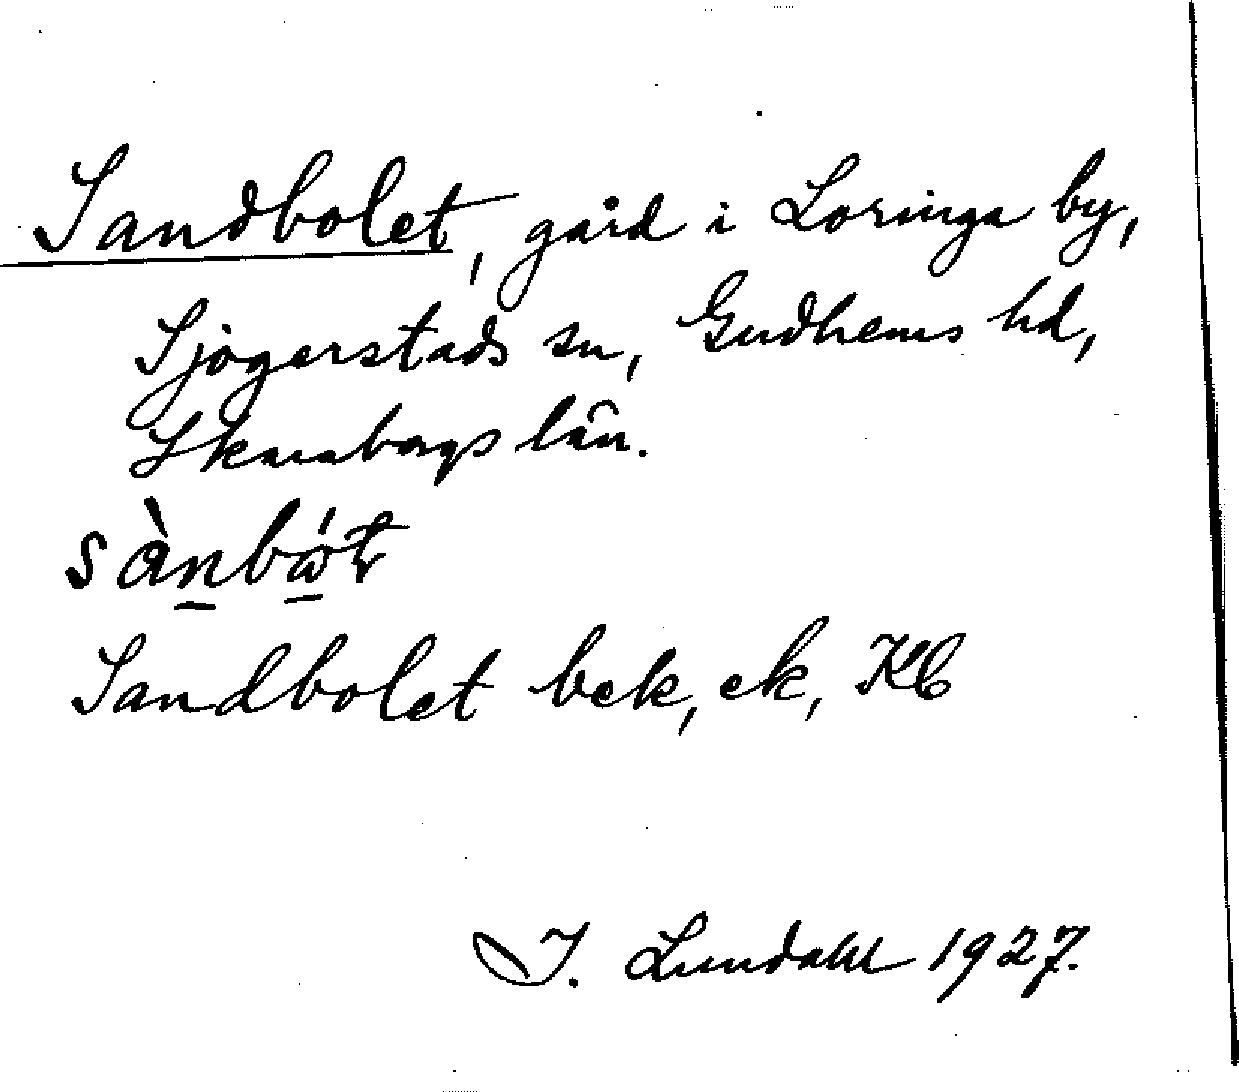 Sandbolet, gård i Loringa by,
Sjogerstads sn, Gudhems hd,
Skaraborgs län.
sànbó̱t
Sandbolet bek, ek, Kb
I. Lundahl 1927.